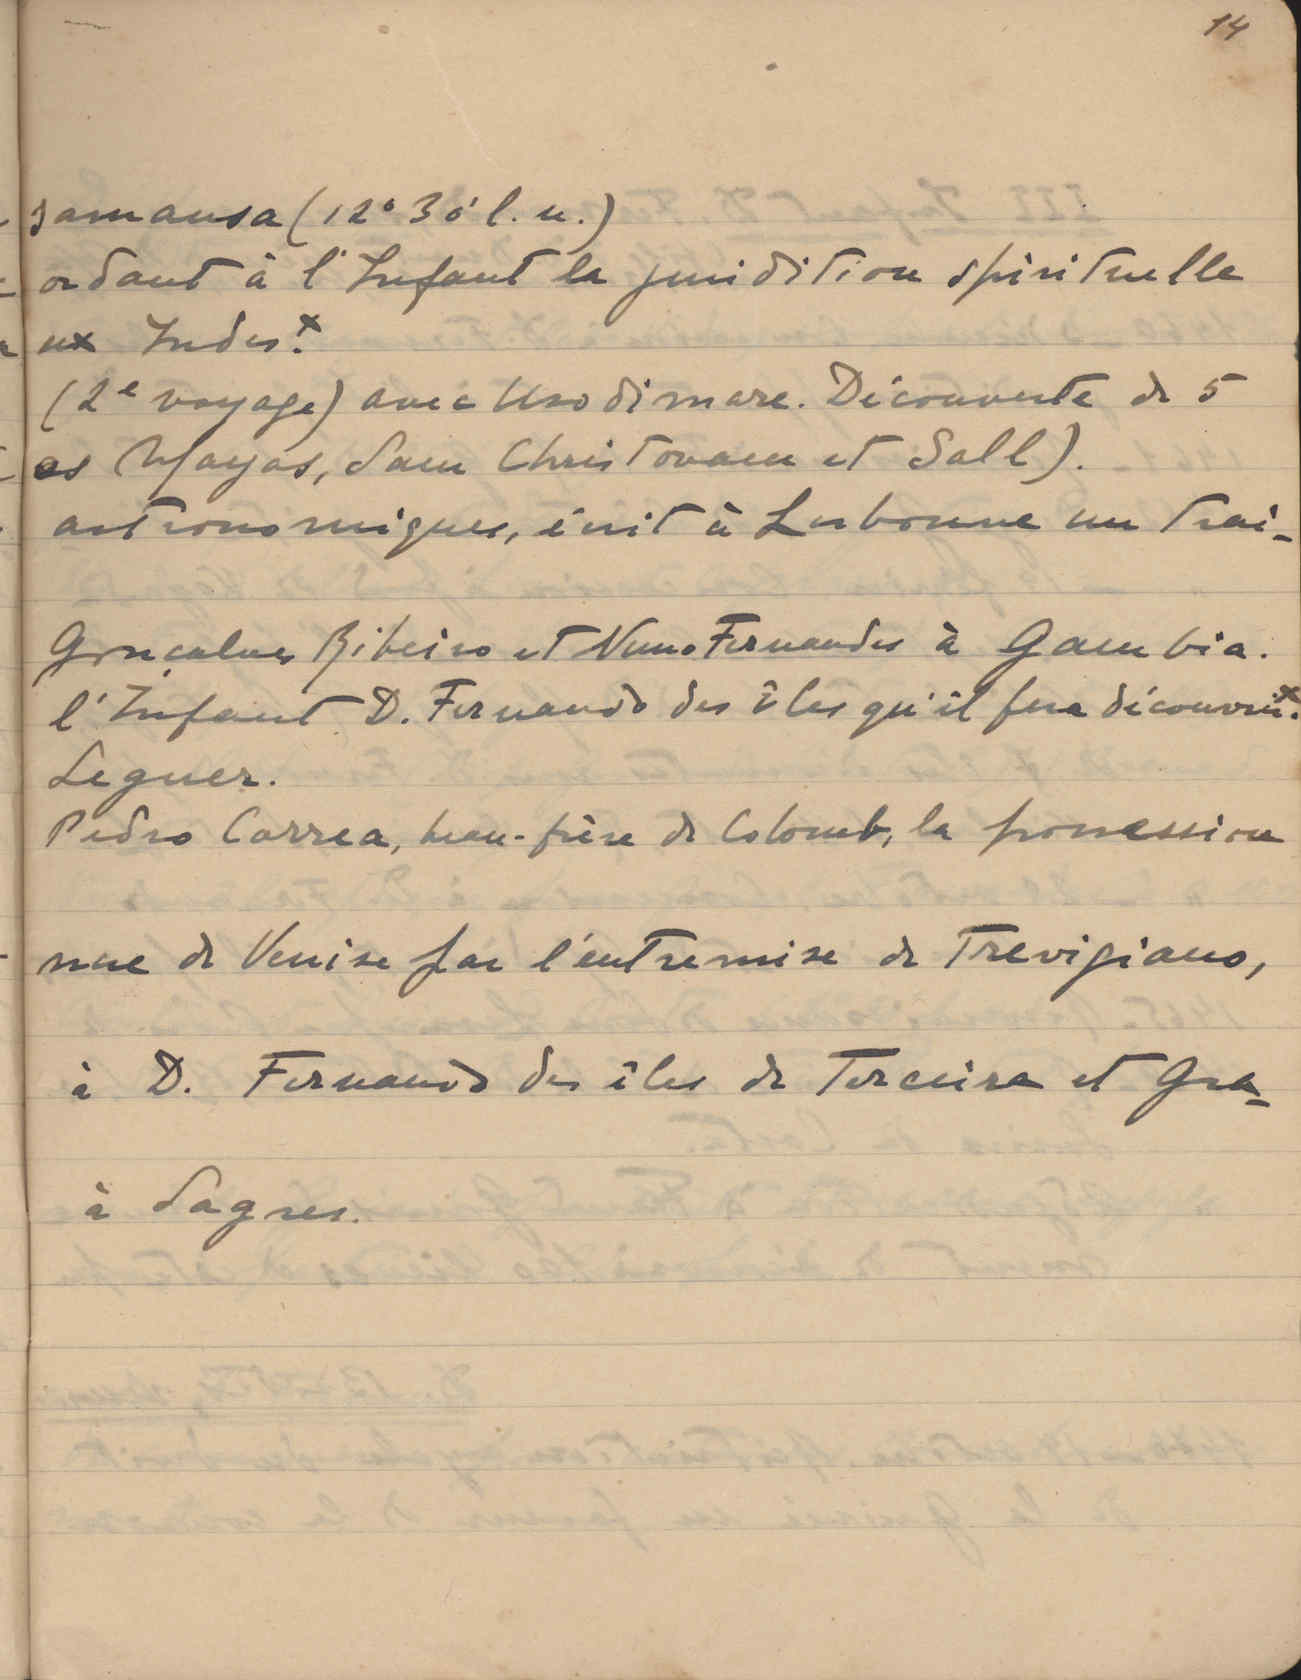 14
samansa (12° 30' l. n.)
ordant à l'Infant la juridition spirituelle
ux Indes.x
(2e voyage) avec Usodimare. Découverte de 5
es Mayas, Sam Christovam et Sall).
astronomiques, écrit à Lisbonne un trai-
Gonçalves Ribeiro et Nuno Fernandes à Gambia.
l'Infant D. Fernando des îles qu'il fera découvrir.x
Leguer.
Pedro Correa, beau-frère de Colomb, la possession
nue de Venise par l'entremise de Trevigiano,
à D. Fernando des îles de Terceira et Gra-
à Sagres.